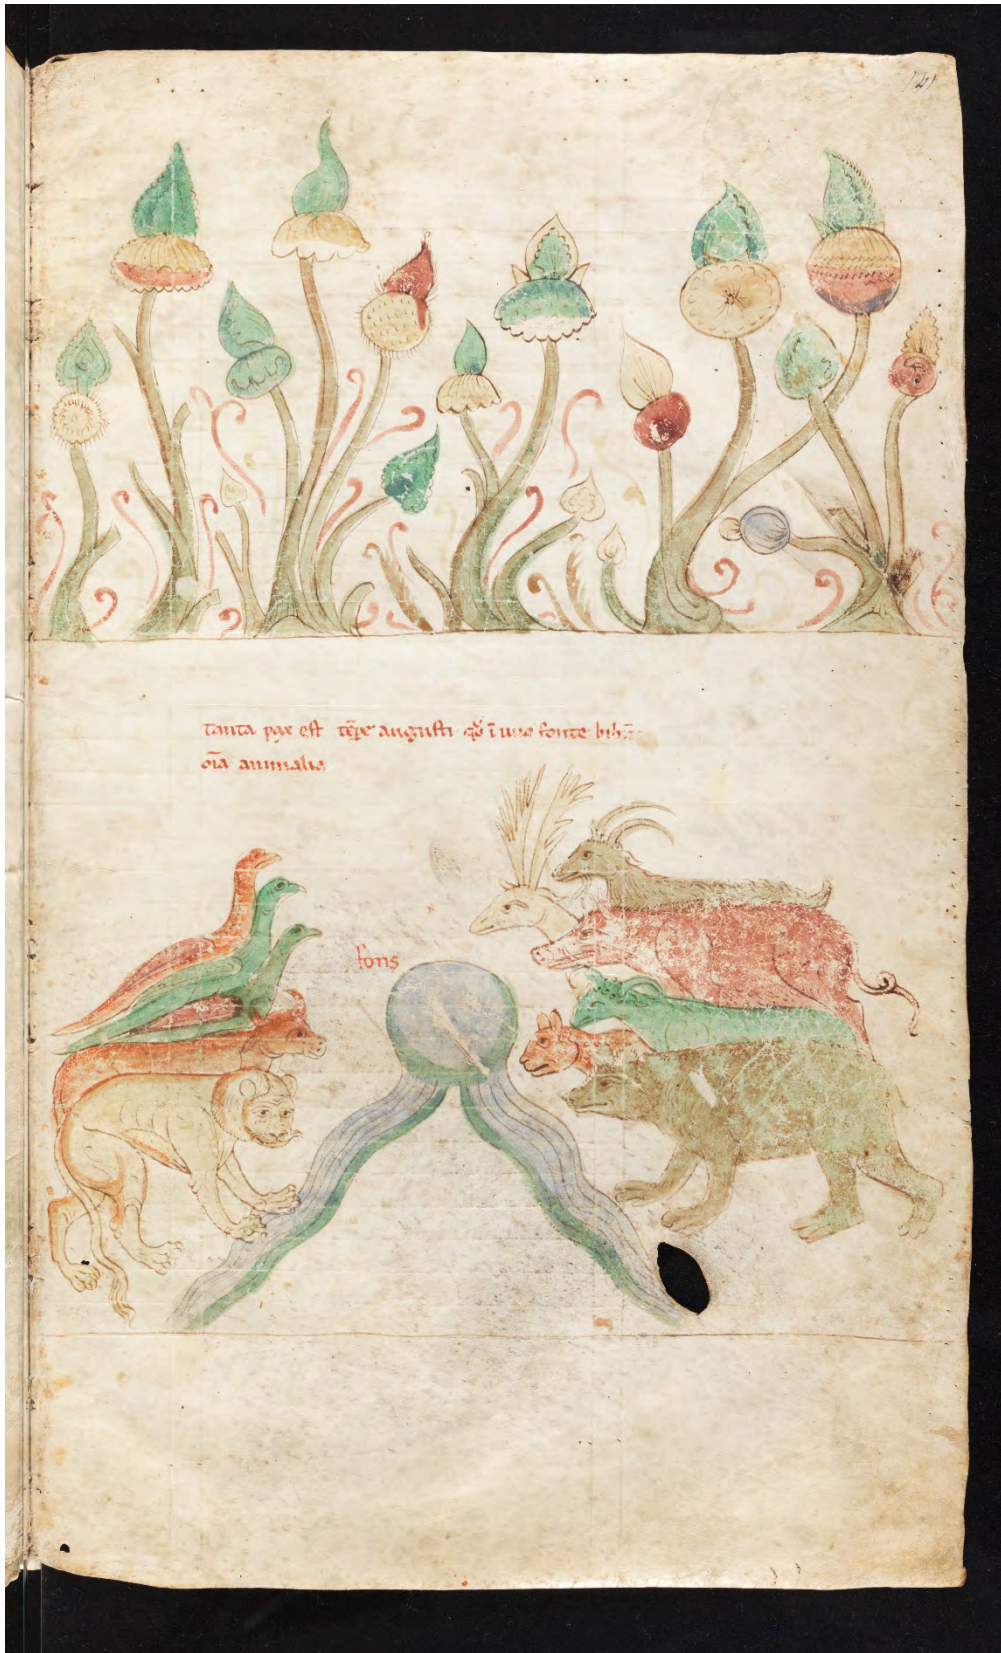 141
tanta pax est tēpe augusti qͦ ī uno fonte bib
oīa animalia
fons